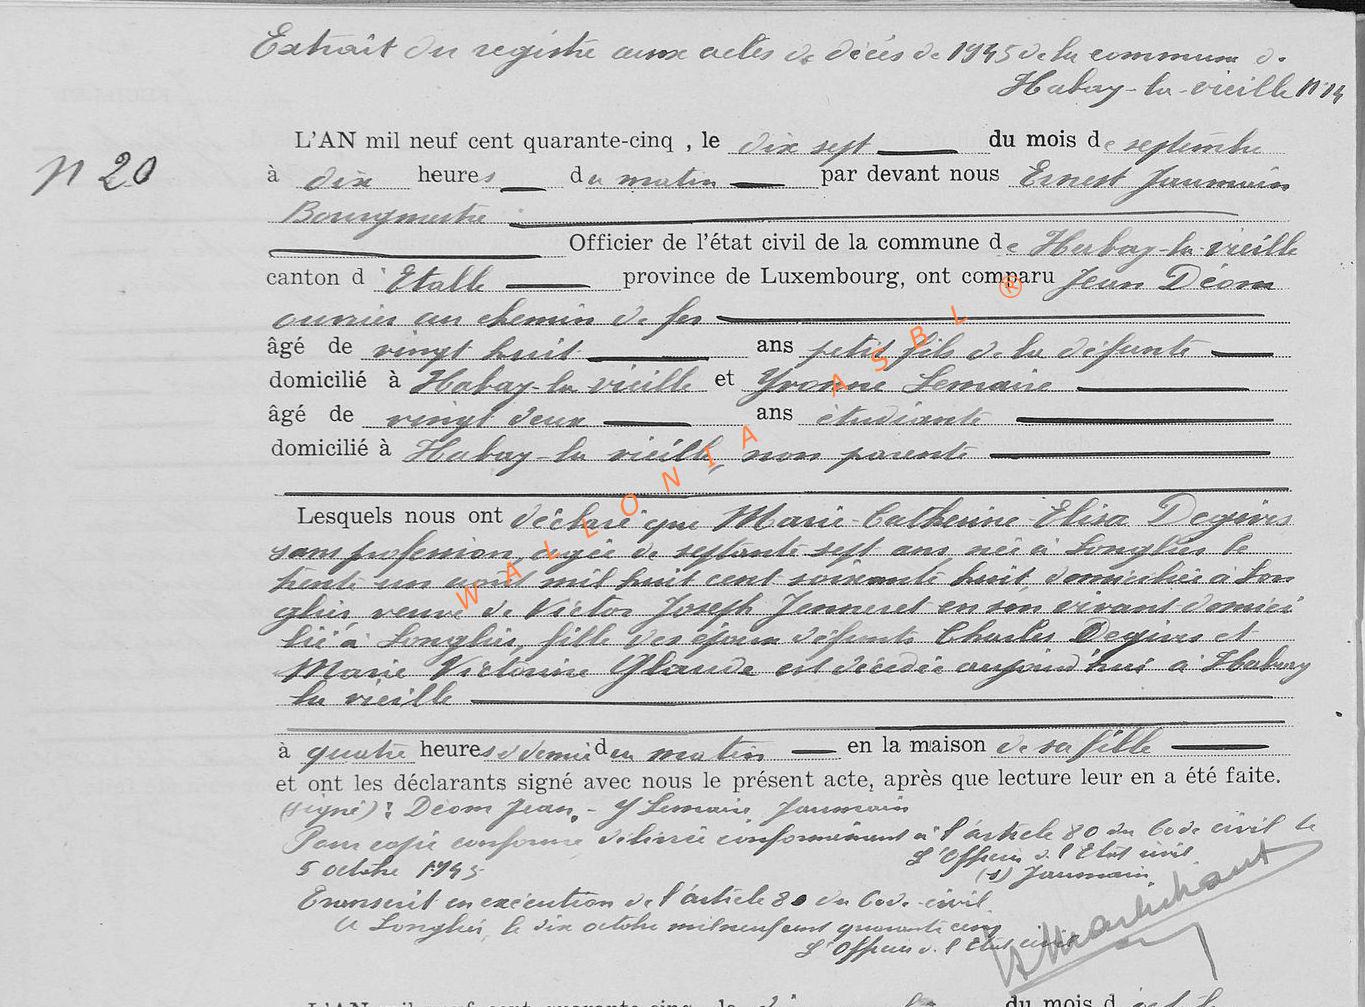 Extrait du registre aux actes de décès de 1945 de la commune de
Habay-la-vieille N°14
N 20
L'AN mil neuf cent quarante-cinq , le dix sept du mois de septembre
à dix heures du matin par devant nous Ernest Jaumain
Bourgmestre
Officier de l'état civil de la commune de Habay-la-vieille
canton d'Etalle province de Luxembourg, ont comparu Jean Déom
ouvrier au chemin de fer
âgé de vingt huit ans petit fils de la défunte
domicilié à Habay-la vieille et Yvonne Lemaire
âgé de vingt deux ans étudiante
domicilié à Habay-la vieille, non parente
Lesquels nous ont déclaré que Marie-Catherine-Elisa Degives
sans profession, agée de septante sept ans, née à Longlier le
trente un août mil huit cent soixante huit domiciliée à Lon
glier veuve de Victor Joseph Jenneret en son vivant domici
lié à Longlier, fille des époux défunts Charles Degives et
Marie Victorine Glaude est décédée aujourd'hui à Habay
la vieille
à quatre heures et demie du matin en la maison de sa fille
et ont les déclarants signé avec nous le présent acte, après que lecture leur en a été faite.
(signé): Déom Jean, - Y Lemaire Jaumain
Pour copie conforme délivrée conformément à l'article 80 du Code civil le
5 octobre 1945
L'Officier de l'Etat civil
(s) Jaumain
Transcrit en exécution de l'article 80 du Code civil
A Longlier, le dix octobre mil neuf cent quarante cinq
L'Officier de l'Etat civil
WALLONIA ASBL ®
L'AN mil neuf cent quarante-cinq , le du mois d